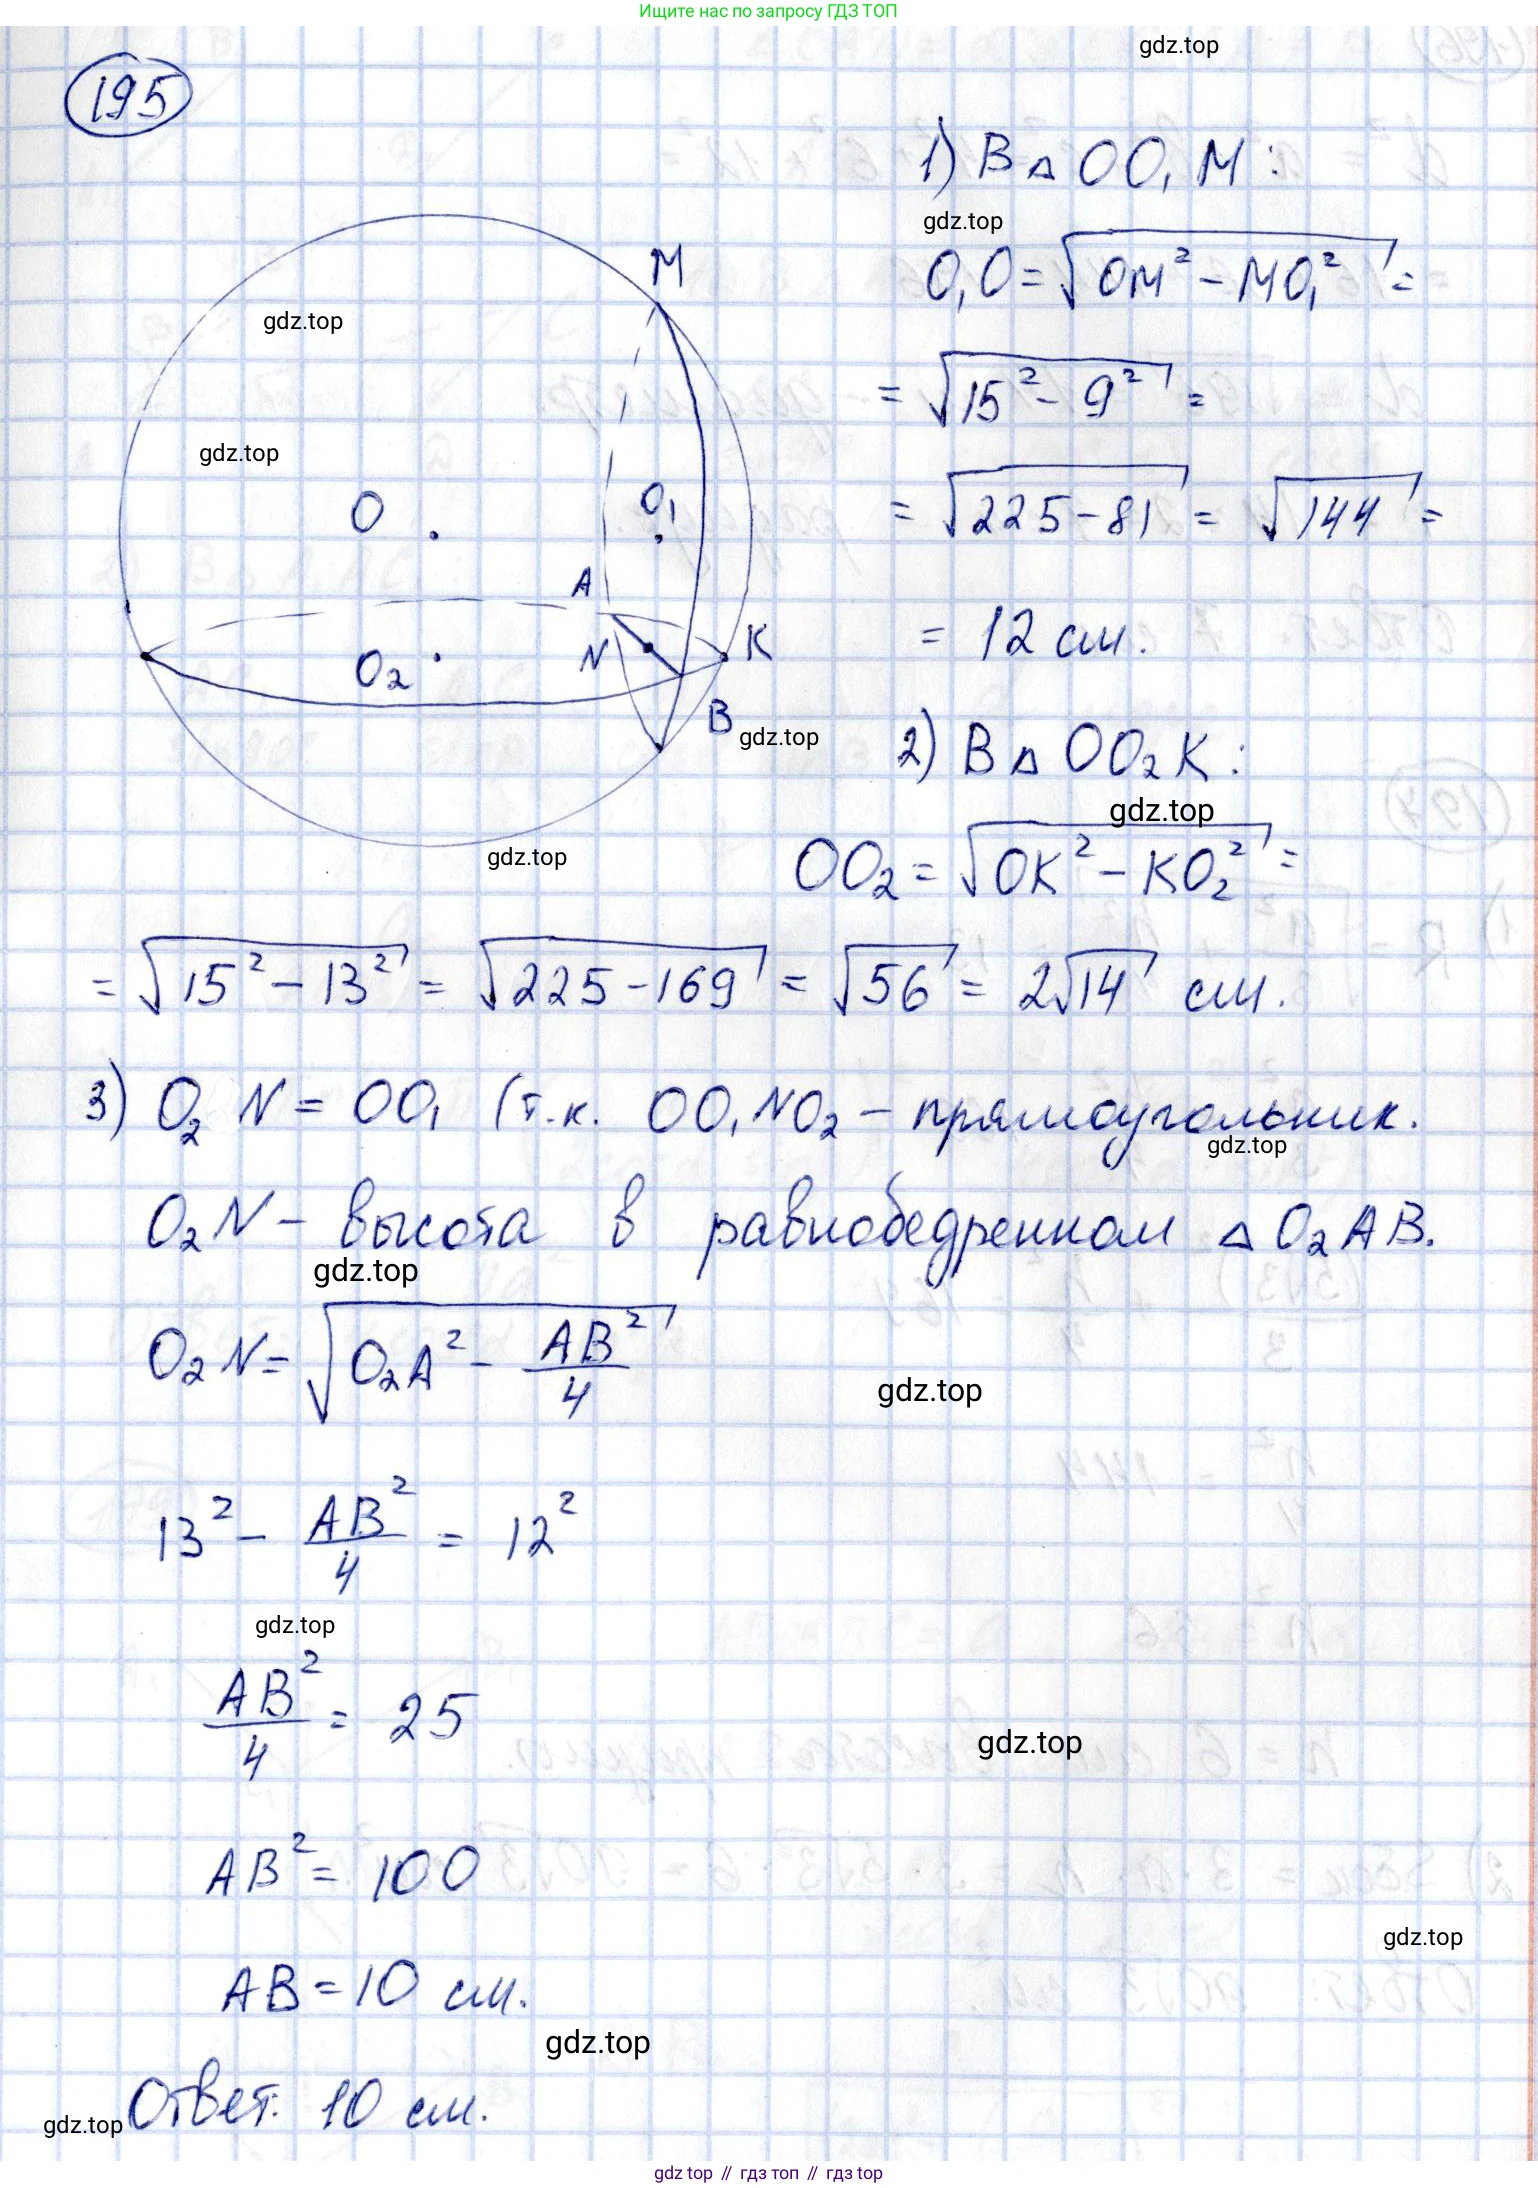 Ищите нас по запросу ГДЗ ТОП
gdz.top
195
1) В △ OO₁M:
gdz.top
O₁O = √(OM² − MO₁²) =
M
gdz.top
= √(15² − 9²) =
gdz.top
O
O₁
= √(225 − 81) = √144 =
A
= 12 см.
N
K
O₂
B
gdz.top
2) В △ OO₂K:
gdz.top
gdz.top
OO₂ = √(OK² − KO₂²) =
= √(15² − 13²) = √(225 − 169) = √56 = 2√14 см.
3) O₂N = OO₁ (т.к. OO₁NO₂ – прямоугольник.
gdz.top
O₂N – высота в равнобедренном △ O₂AB.
gdz.top
O₂N = √(O₂A² − AB²/4)
gdz.top
13² − AB²/4 = 12²
gdz.top
AB²/4 = 25
gdz.top
AB² = 100
gdz.top
AB = 10 см.
gdz.top
Ответ: 10 см.
gdz.top
gdz top // гдз топ // gdz top